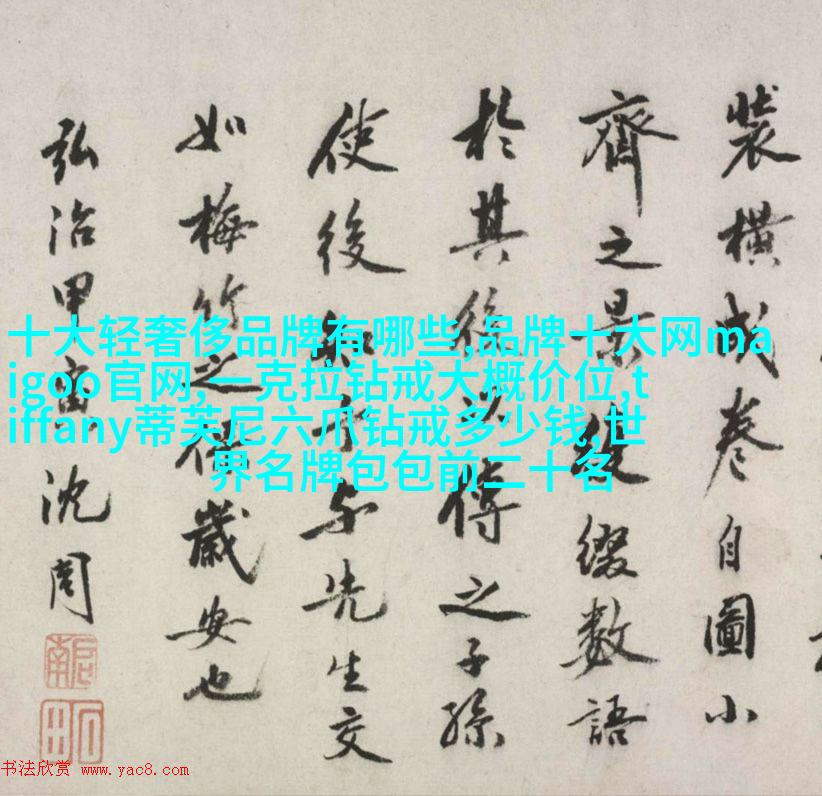 裝橫成卷自圖小
齊之景復綴數語
於其後以傳之子孫
使後知予与先生交
如梅竹之保歲安也
弘治甲寅沈周
啟南
石田
十大轻奢侈品牌有哪些,品牌十大网ma
igoo官网,一克拉钻戒大概价位,t
iffany蒂芙尼六爪钻戒多少钱,世
界名牌包包前二十名
书法欣赏 www.yac8.com